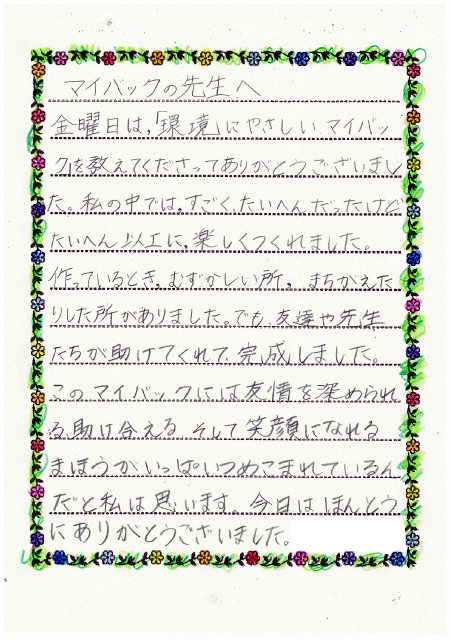 マイバックの先生へ
金曜日は,「環境」にやさしいマイバッ
ク」を教えてくださってありがとうございまし
た。私の中では,すごく,たいへんだったけど
たいへん以上に,楽しくつくれました。
作っているとき,むずかしい所。まちがえた
りした所がありました。でも,友達や先生
たちが助けてくれて,完成しました。
このマイバックには友情を深められ
る,助け合える そして笑顔になれる
まほうがいっぱいつめこまれているん
だと私は思います。今日はほんとう
にありがとうございました。